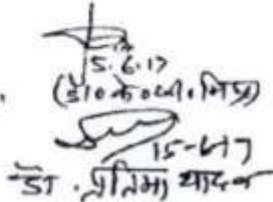 15.6.17
(डॉ० के० जी० मिश्र)
15-6-17
डा. प्रतिमा यादव